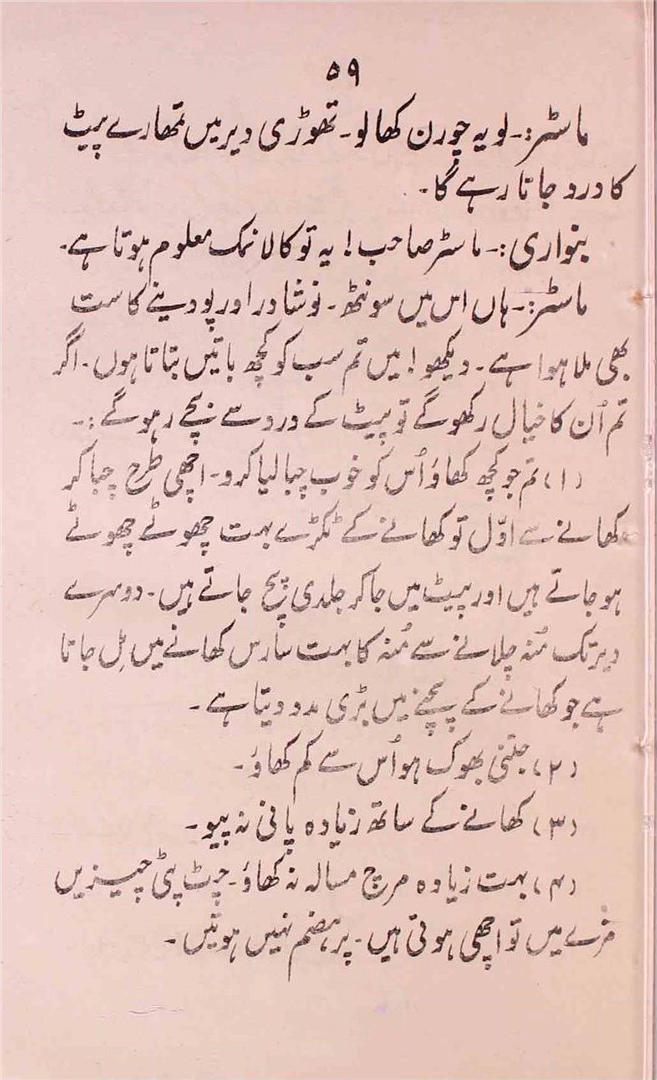 ۵۹
ماسٹر:۔ لو یہ چورن کھالو۔ تھوڑی دیر میں تمھارے پیٹ
کا درد جاتا رہے گا۔
بنواری:۔ ماسٹر صاحب! یہ تو کالا نمک معلوم ہوتا ہے۔
ماسٹر:۔ ہاں اس میں سونٹھ۔ نوشادر اور پودینے کا ست
بھی ملا ہوا ہے۔ دیکھو! میں تم سب کو کچھ باتیں بتاتا ہوں۔ اگر
تم اُن کا خیال رکھوگے تو پیٹ کے درد سے بچے رہوگے:۔
(۱) تم جو کچھ کھاؤ اُس کو خوب چبا لیا کرو۔ اچھی طرح چبا کر
کھانے سے اوّل تو کھانے کے ٹکڑے بہت چھوٹے چھوٹے
ہو جاتے ہیں اور پیٹ میں جا کر جلدی پچ جاتے ہیں۔ دوسرے
دیر تک مُنہ چلانے سے مُنہ کا بہت سا رس کھانے میں مِل جاتا
ہے جو کھانے کے پچنے میں بڑی مدد دیتا ہے۔
(۲) جتنی بھوک ہو اُس سے کم کھاؤ۔
(۳) کھانے کے ساتھ زیادہ پانی نہ پیو۔
(۴) بہت زیادہ مرچ مسالہ نہ کھاؤ۔ چٹ پٹی چیزیں
مزے میں تو اچھی ہوتی ہیں۔ پر ہضم نہیں ہوتیں۔